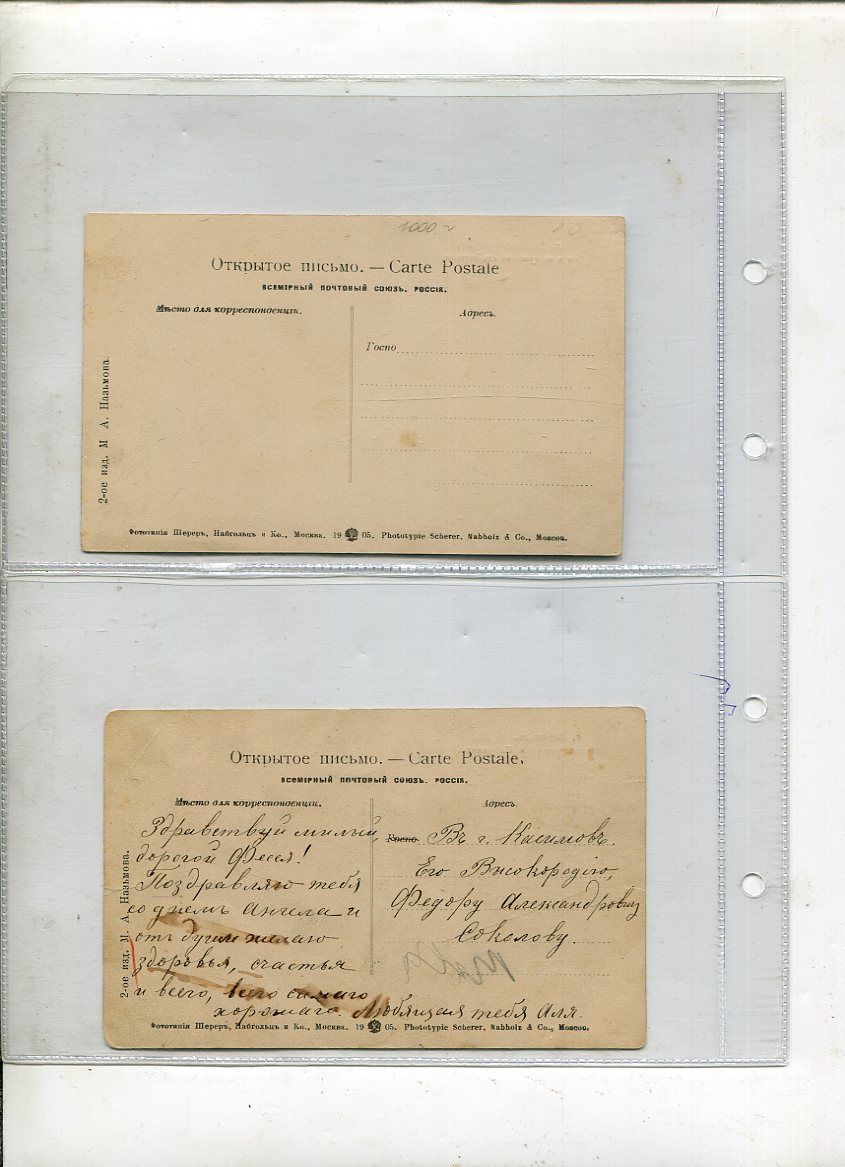 1000 г
Открытое письмо. — Carte Postale
ВСЕМІРНЫЙ ПОЧТОВЫЙ СОЮЗЪ. РОССІЯ.
Мѣсто для корреспонденціи.
Адресъ.
Госпо
2-ое изд. М А. Назьмова.
Фототипія Шереръ, Набгольцъ и Ко., Москва. 19 05. Phototypie Scherer, Nabholz & Co., Moscou.
Открытое письмо. — Carte Postale.
ВСЕМІРНЫЙ ПОЧТОВЫЙ СОЮЗЪ. РОССІЯ.
Мѣсто для корреспонденціи.
Здравствуй милый,
дорогой Федя!
Поздравляю тебя
со днемъ Ангела и
отъ души желаю
здоровья, счастья
и всего, всего самаго
хорошаго. Любящая тебя Аля.
Адресъ.
Госпо Въ г. Касимовъ.
Его Высокородію,
Федору Александровичу
Соколову.
2-ое изд. М. А. Назьмова.
Фототипія Шереръ, Набгольцъ и Ко., Москва. 19 05. Phototypie Scherer, Nabholz & Co., Moscou.